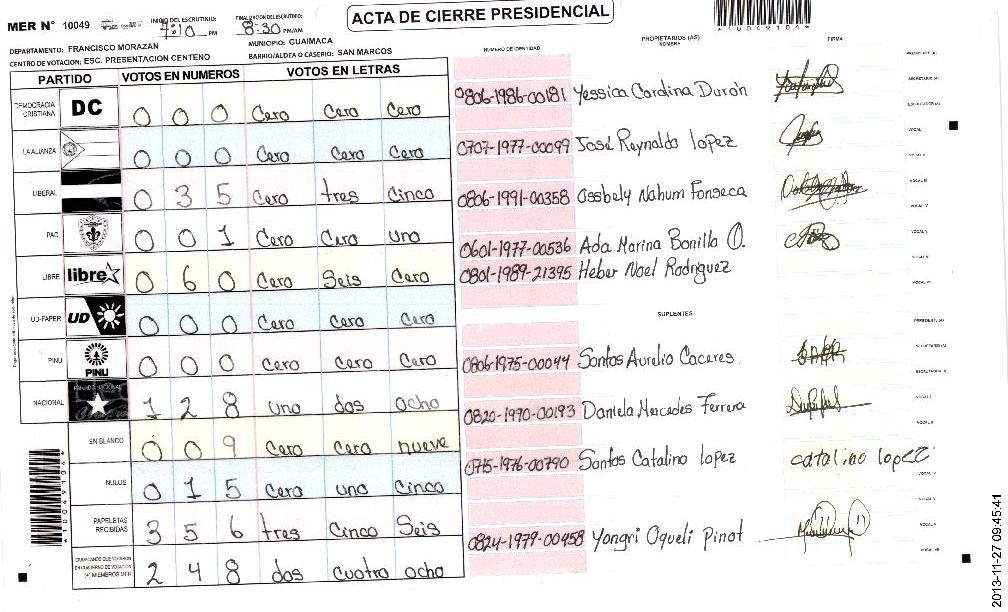 MER N° 10049 INICIO DEL ESCRUTINIO: 7:10 PM FINALIZACION DEL ESCRUTINIO: 8:30 PM/AM ACTA DE CIERRE PRESIDENCIAL *100491041*
DEPARTAMENTO: FRANCISCO MORAZAN MUNICIPIO: GUAIMACA
CENTRO DE VOTACION: ESC. PRESENTACION CENTENO BARRIO/ALDEA O CASERIO: SAN MARCOS
NUMERO DE IDENTIDAD PROPIETARIOS (AS) NOMBRE FIRMA
PARTIDO VOTOS EN NUMEROS VOTOS EN LETRAS
DEMOCRACIA CRISTIANA DC 0 0 0 Cero Cero Cero
LA ALIANZA 0 0 0 Cero Cero Cero
LIBERAL 0 3 5 Cero tres Cinco
PAC 0 0 1 Cero Cero uno
LIBRE libre 0 6 0 Cero Seis Cero
UD-FAPER UD 0 0 0 Cero Cero Cero
PINU PINU 0 0 0 Cero Cero Cero
NACIONAL PARTIDO NACIONAL 1 2 8 uno dos ocho
EN BLANCO 0 0 9 Cero Cero nueve
NULOS 0 1 5 Cero uno Cinco
PAPELETAS RECIBIDAS 3 5 6 tres Cinco Seis
CIUDADANOS QUE VOTARON EN CUADERNO DE VOTACION (+) MIEMBROS MER 2 4 8 dos cuatro ocho
0806-1986-00181 Yessica Carolina Durón
0707-1977-00099 José Reynaldo lopez
0806-1991-00358 Ossbely Nahum Fonseca
0601-1977-00536 Ada Marina Bonilla O.
0801-1989-21395 Heber Noel Rodriguez
SUPLENTES
0806-1975-00044 Santos Aurelio Caceres.
0820-1990-00193 Daniela Mercedes Ferrera
0715-1976-00790 Santos Catalino lopez catalino lopez
0824-1979-00458 Yongri Oqueli Pinot
PRESIDENTE (A)
SECRETARIO (A)
ESCRUTADOR (A)
VOCAL I
VOCAL II
VOCAL III
VOCAL IV
VOCAL V
VOCAL VI
VOCAL VII
PRESIDENTE (A)
SECRETARIO (A)
ESCRUTADOR (A)
VOCAL I
VOCAL II
VOCAL III
VOCAL IV
VOCAL V
VOCAL VI
VOCAL VII
*100491041*
2013-11-27 09:45:41